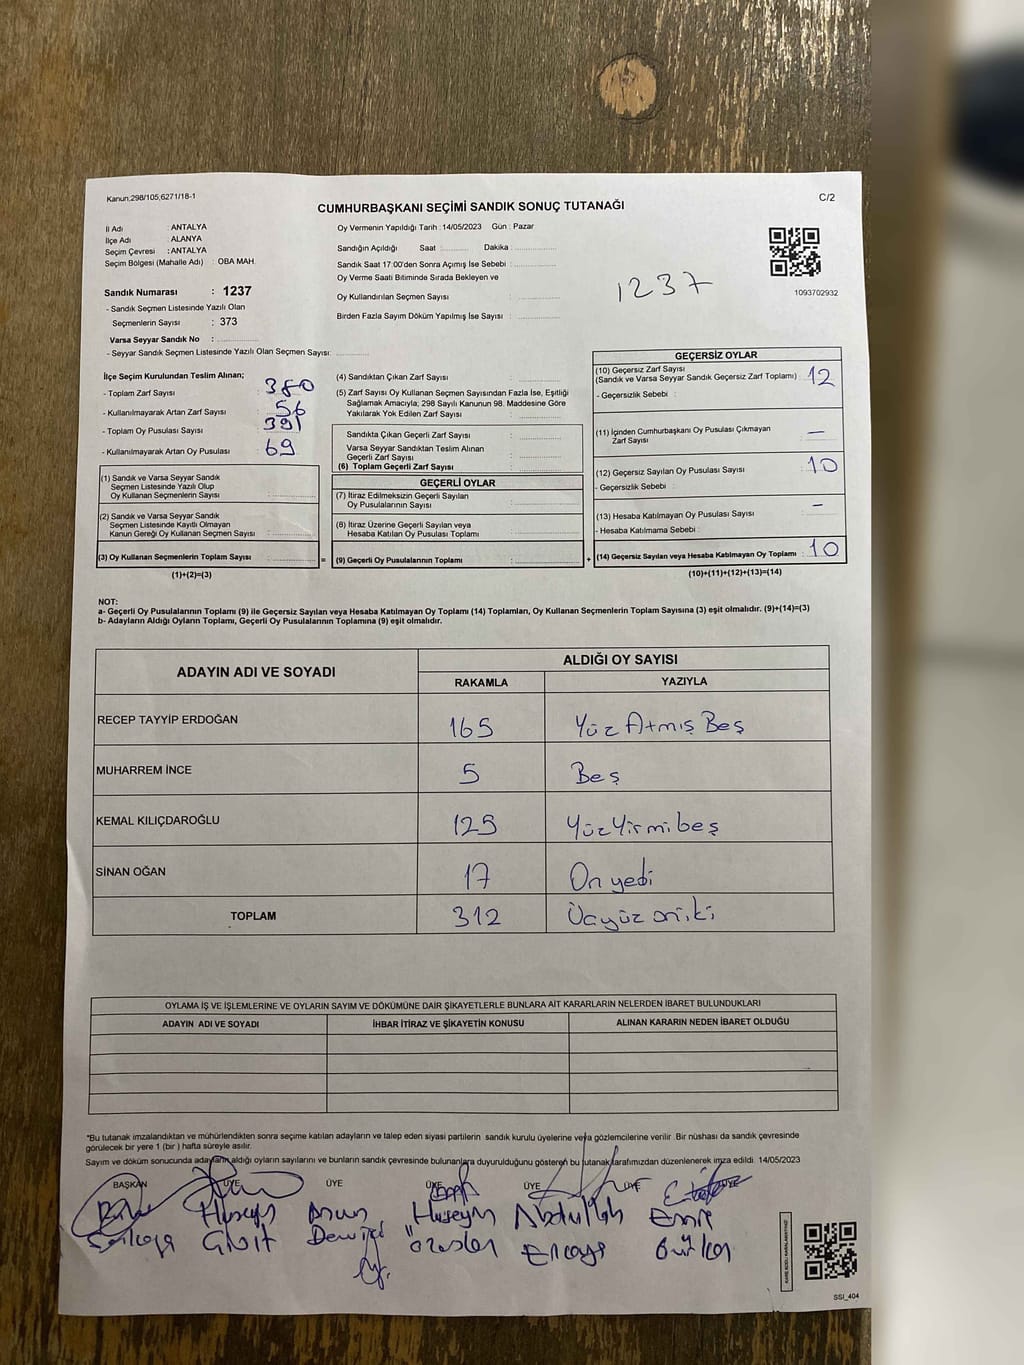 Kanun;298/105;6271/18-1
C/2
CUMHURBAŞKANI SEÇİMİ SANDIK SONUÇ TUTANAĞI
İl Adı : ANTALYA
İlçe Adı : ALANYA
Seçim Çevresi : ANTALYA
Seçim Bölgesi (Mahalle Adı) : OBA MAH.
Sandık Numarası : 1237
- Sandık Seçmen Listesinde Yazılı Olan
Seçmenlerin Sayısı : 373
Varsa Seyyar Sandık No :
- Seyyar Sandık Seçmen Listesinde Yazılı Olan Seçmen Sayısı:
Oy Vermenin Yapıldığı Tarih : 14/05/2023 Gün : Pazar
Sandığın Açıldığı Saat : Dakika :
Sandık Saat 17:00'den Sonra Açımış İse Sebebi :
Oy Verme Saati Bitiminde Sırada Bekleyen ve
Oy Kullandırılan Seçmen Sayısı :
Birden Fazla Sayım Döküm Yapılmış İse Sayısı :
1237
1093702932
İlçe Seçim Kurulundan Teslim Alınan;
- Toplam Zarf Sayısı : 380
- Kullanılmayarak Artan Zarf Sayısı : 56
- Toplam Oy Pusulası Sayısı : 391
- Kullanılmayarak Artan Oy Pusulası : 69
(1) Sandık ve Varsa Seyyar Sandık
Seçmen Listesinde Yazılı Olup
Oy Kullanan Seçmenlerin Sayısı :
(2) Sandık ve Varsa Seyyar Sandık
Seçmen Listesinde Kayıtlı Olmayan
Kanun Gereği Oy Kullanan Seçmen Sayısı :
(3) Oy Kullanan Seçmenlerin Toplam Sayısı : =
(1)+(2)=(3)
(4) Sandıktan Çıkan Zarf Sayısı :
(5) Zarf Sayısı Oy Kullanan Seçmen Sayısından Fazla İse, Eşitliği
Sağlamak Amacıyla; 298 Sayılı Kanunun 98. Maddesine Göre
Yakılarak Yok Edilen Zarf Sayısı :
Sandıkta Çıkan Geçerli Zarf Sayısı :
Varsa Seyyar Sandıktan Teslim Alınan
Geçerli Zarf Sayısı :
(6) Toplam Geçerli Zarf Sayısı :
GEÇERLİ OYLAR
(7) İtiraz Edilmeksizin Geçerli Sayılan
Oy Pusulalarının Sayısı :
(8) İtiraz Üzerine Geçerli Sayılan veya
Hesaba Katılan Oy Pusulası Toplamı :
(9) Geçerli Oy Pusulalarının Toplamı : +
GEÇERSİZ OYLAR
(10) Geçersiz Zarf Sayısı
(Sandık ve Varsa Seyyar Sandık Geçersiz Zarf Toplamı) : 12
- Geçersizlik Sebebi :
(11) İçinden Cumhurbaşkanı Oy Pusulası Çıkmayan
Zarf Sayısı : —
(12) Geçersiz Sayılan Oy Pusulası Sayısı : 10
- Geçersizlik Sebebi :
(13) Hesaba Katılmayan Oy Pusulası Sayısı : —
- Hesaba Katılmama Sebebi :
(14) Geçersiz Sayılan veya Hesaba Katılmayan Oy Toplamı : 10
(10)+(11)+(12)+(13)=(14)
NOT:
a- Geçerli Oy Pusulalarının Toplamı (9) ile Geçersiz Sayılan veya Hesaba Katılmayan Oy Toplamı (14) Toplamları, Oy Kullanan Seçmenlerin Toplam Sayısına (3) eşit olmalıdır. (9)+(14)=(3)
b- Adayların Aldığı Oyların Toplamı, Geçerli Oy Pusulalarının Toplamına (9) eşit olmalıdır.
ADAYIN ADI VE SOYADI ALDIĞI OY SAYISI
RAKAMLA YAZIYLA
RECEP TAYYİP ERDOĞAN 165 Yüz Atmış Beş
MUHARREM İNCE 5 Beş
KEMAL KILIÇDAROĞLU 125 YüzYirmibeş
SİNAN OĞAN 17 On yedi
TOPLAM 312 Üçyüz oniki
OYLAMA İŞ VE İŞLEMLERİNE VE OYLARIN SAYIM VE DÖKÜMÜNE DAİR ŞİKAYETLERLE BUNLARA AİT KARARLARIN NELERDEN İBARET BULUNDUKLARI
ADAYIN ADI VE SOYADI İHBAR İTİRAZ VE ŞİKAYETİN KONUSU ALINAN KARARIN NEDEN İBARET OLDUĞU
*Bu tutanak imzalandıktan ve mühürlendikten sonra seçime katılan adayların ve talep eden siyasi partilerin sandık kurulu üyelerine veya gözlemcilerine verilir .Bir nüshası da sandık çevresinde
görülecek bir yere 1 (bir ) hafta süreyle asılır.
Sayım ve döküm sonucunda adayların aldığı oyların sayılarını ve bunların sandık çevresinde bulunanlara duyurulduğunu gösteren bu tutanak tarafımızdan düzenlenerek imza edildi. 14/05/2023
BAŞKAN ÜYE ÜYE ÜYE ÜYE ÜYE
Huseyn Huseyin Abdullah Emir
SSI_404